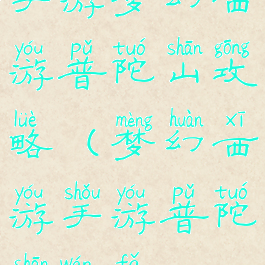 手游梦幻西
yóu pǔ tuó shān gōng
游普陀山攻
lüè mèng huàn xī
略（梦幻西
yóu shǒu yóu pǔ tuó
游手游普陀
shān wán fǎ